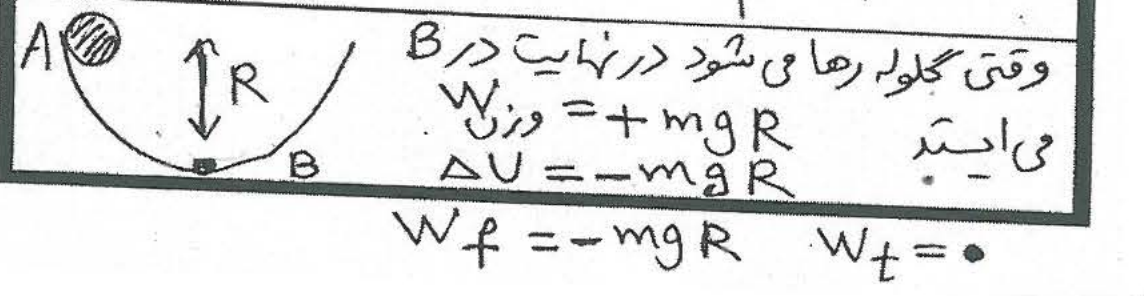 وقتی گلوله رها می شود در نهایت در B
می ایستد
A
R
B
W وزن = + mgR
ΔU = -mgR
Wf = -mgR   Wt = ۰